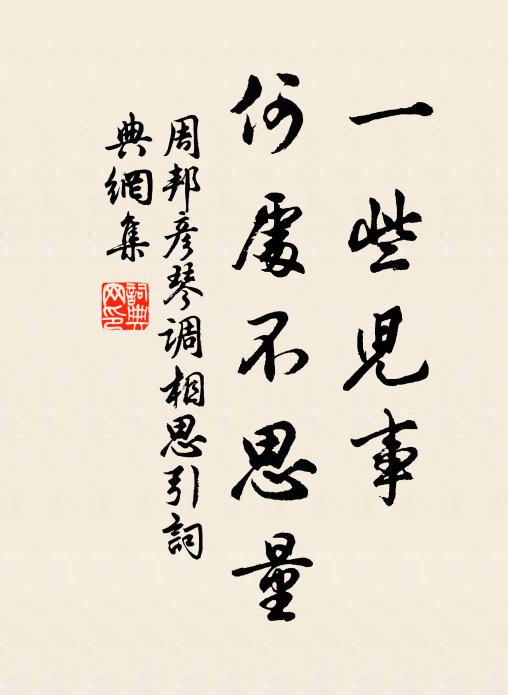 一些兒事
何處不思量
周邦彥琴調相思引詞
典網集
詞典網印